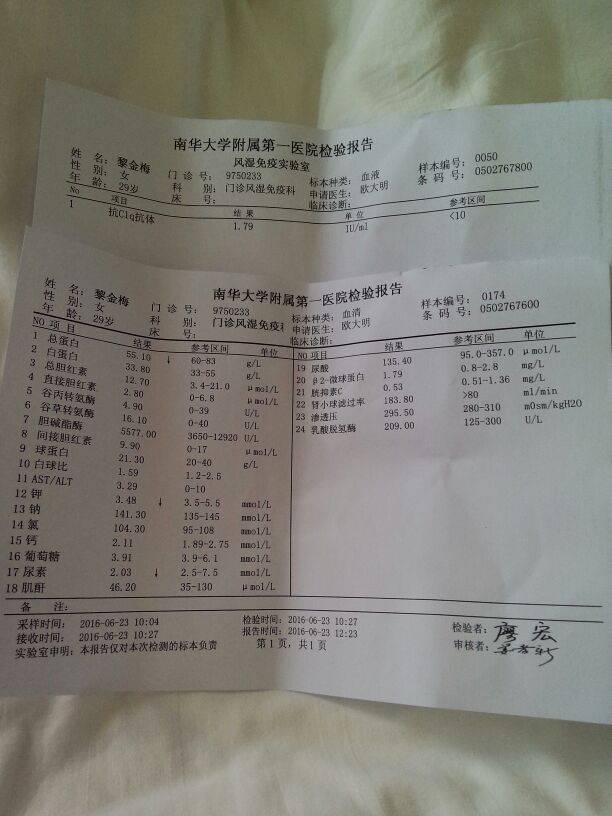 南华大学附属第一医院检验报告
风湿免疫实验室
姓 名: 黎金梅 门 诊 号: 9750233 标本种类: 血液 样本编号: 0050
性 别: 女 科 别: 门诊风湿免疫科 申请医生: 欧大明 条 码 号: 0502767800
年 龄: 29岁 床 号: 临床诊断:
No 项目 结 果 单 位 参考区间
1 抗C1q抗体 1.79 IU/ml <10
南华大学附属第一医院检验报告
姓 名: 黎金梅 门 诊 号: 9750233 标本种类: 血清 样本编号: 0174
性 别: 女 科 别: 门诊风湿免疫科 申请医生: 欧大明 条 码 号: 0502767600
年 龄: 29岁 床 号: 临床诊断:
NO 项 目 结果 参考区间 单位
1 总蛋白 55.10 ↓ 60-83 g/L
2 白蛋白 33.80 33-55 g/L
3 总胆红素 12.70 3.4-21.0 μmol/L
4 直接胆红素 2.80 0-6.8 μmol/L
5 谷丙转氨酶 4.90 0-39 U/L
6 谷草转氨酶 16.10 0-40 U/L
7 胆碱酯酶 5577.00 3650-12920 U/L
8 间接胆红素 9.90 0-17 μmol/L
9 球蛋白 21.30 20-40 g/L
10 白球比 1.59 1.2-2.5
11 AST/ALT 3.29 0-10
12 钾 3.48 ↓ 3.5-5.5 mmol/L
13 钠 141.30 135-145 mmol/L
14 氯 104.30 95-108 mmol/L
15 钙 2.11 1.89-2.75 mmol/L
16 葡萄糖 3.91 3.9-6.1 mmol/L
17 尿素 2.03 ↓ 2.5-7.5 mmol/L
18 肌酐 46.20 35-130 μmol/L
NO 项目 结果 参考区间 单位
19 尿酸 135.40 95.0-357.0 μmol/L
20 β2-微球蛋白 1.79 0.8-2.8 mg/L
21 胱抑素C 0.53 0.51-1.36 mg/L
22 肾小球滤过率 183.80 >80 ml/min
23 渗透压 295.50 280-310 mOsm/kgH2O
24 乳酸脱氢酶 209.00 125-300 U/L
备 注:
采样时间: 2016-06-23 10:04 检验时间: 2016-06-23 10:27 检验者: 廖宏
接收时间: 2016-06-23 10:27 报告时间: 2016-06-23 12:23 审核者:
实验室申明: 本报告仅对本次检测的标本负责 第1页, 共1页